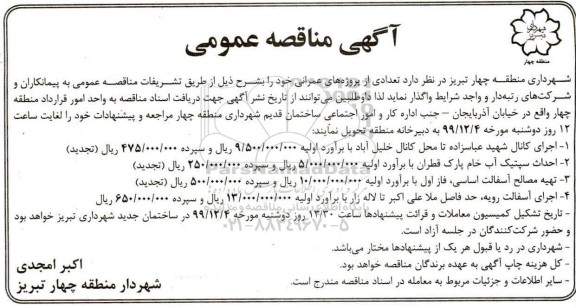 آگهی مناقصه عمومی
شهرداری تبریز
منطقه چهار
شهرداری منطقــه چهار تبریز در نظر دارد تعدادی از پروژه‌های عمرانی خود را بشــرح ذیل از طریق تشــریفات مناقصــه عمومی به پیمانکاران و
شرکت‌های رتبه‌دار و واجد شرایط واگذار نماید لذا داوطلبین می‌توانند از تاریخ نشر آگهی جهت دریافت اسناد مناقصه به واحد امور قرارداد منطقه
چهار واقع در خیابان آذربایجان – جنب اداره کار و امور اجتماعی ساختمان قدیم شهرداری منطقه چهار مراجعه و پیشنهادات خود را لغایت ساعت
۱۲ روز دوشنبه مورخه ۹۹/۱۲/۴ به دبیرخانه منطقه تحویل نمایند:
۱- اجرای کانال شهید عباسزاده تا محل کانال خلیل آباد با برآورد اولیه ۹/۵۰۰/۰۰۰/۰۰۰ ریال و سپرده ۴۷۵/۰۰۰/۰۰۰ ریال (تجدید)
۲- احداث سپتیک آب خام پارک قطران با برآورد اولیه ۵/۰۰۰/۰۰۰/۰۰۰ ریال و سپرده ۲۵۰/۰۰۰/۰۰۰ ریال (تجدید)
۳- تهیه مصالح آسفالت اساسی، فاز اول با برآورد اولیه ۱۰/۰۰۰/۰۰۰/۰۰۰ ریال و سپرده ۵۰۰/۰۰۰/۰۰۰ ریال (تجدید)
۴- اجرای آسفالت رویه، حد فاصل ملا علی اکبر تا لاله زار با برآورد اولیه ۱۳/۰۰۰/۰۰۰/۰۰۰ ریال و سپرده ۶۵۰/۰۰۰/۰۰۰ ریال
- تاریخ تشکیل کمیسیون معاملات و قرائت پیشنهادها ساعت ۱۳/۳۰ روز دوشنبه مورخه ۹۹/۱۲/۴ در ساختمان جدید شهرداری تبریز خواهد بود
و حضور شرکت‌کنندگان در جلسه آزاد است.
- شهرداری در رد یا قبول هر یک از پیشنهادها مختار می‌باشد.
- کل هزینه چاپ آگهی به عهده برندگان مناقصه خواهد بود.
- سایر اطلاعات و جزئیات مربوط به معامله در اسناد مناقصه مندرج است.
اکبر امجدی
شهردار منطقه چهار تبریز
۰۲۱-۸۸۳۴۹۶۷۰-۵